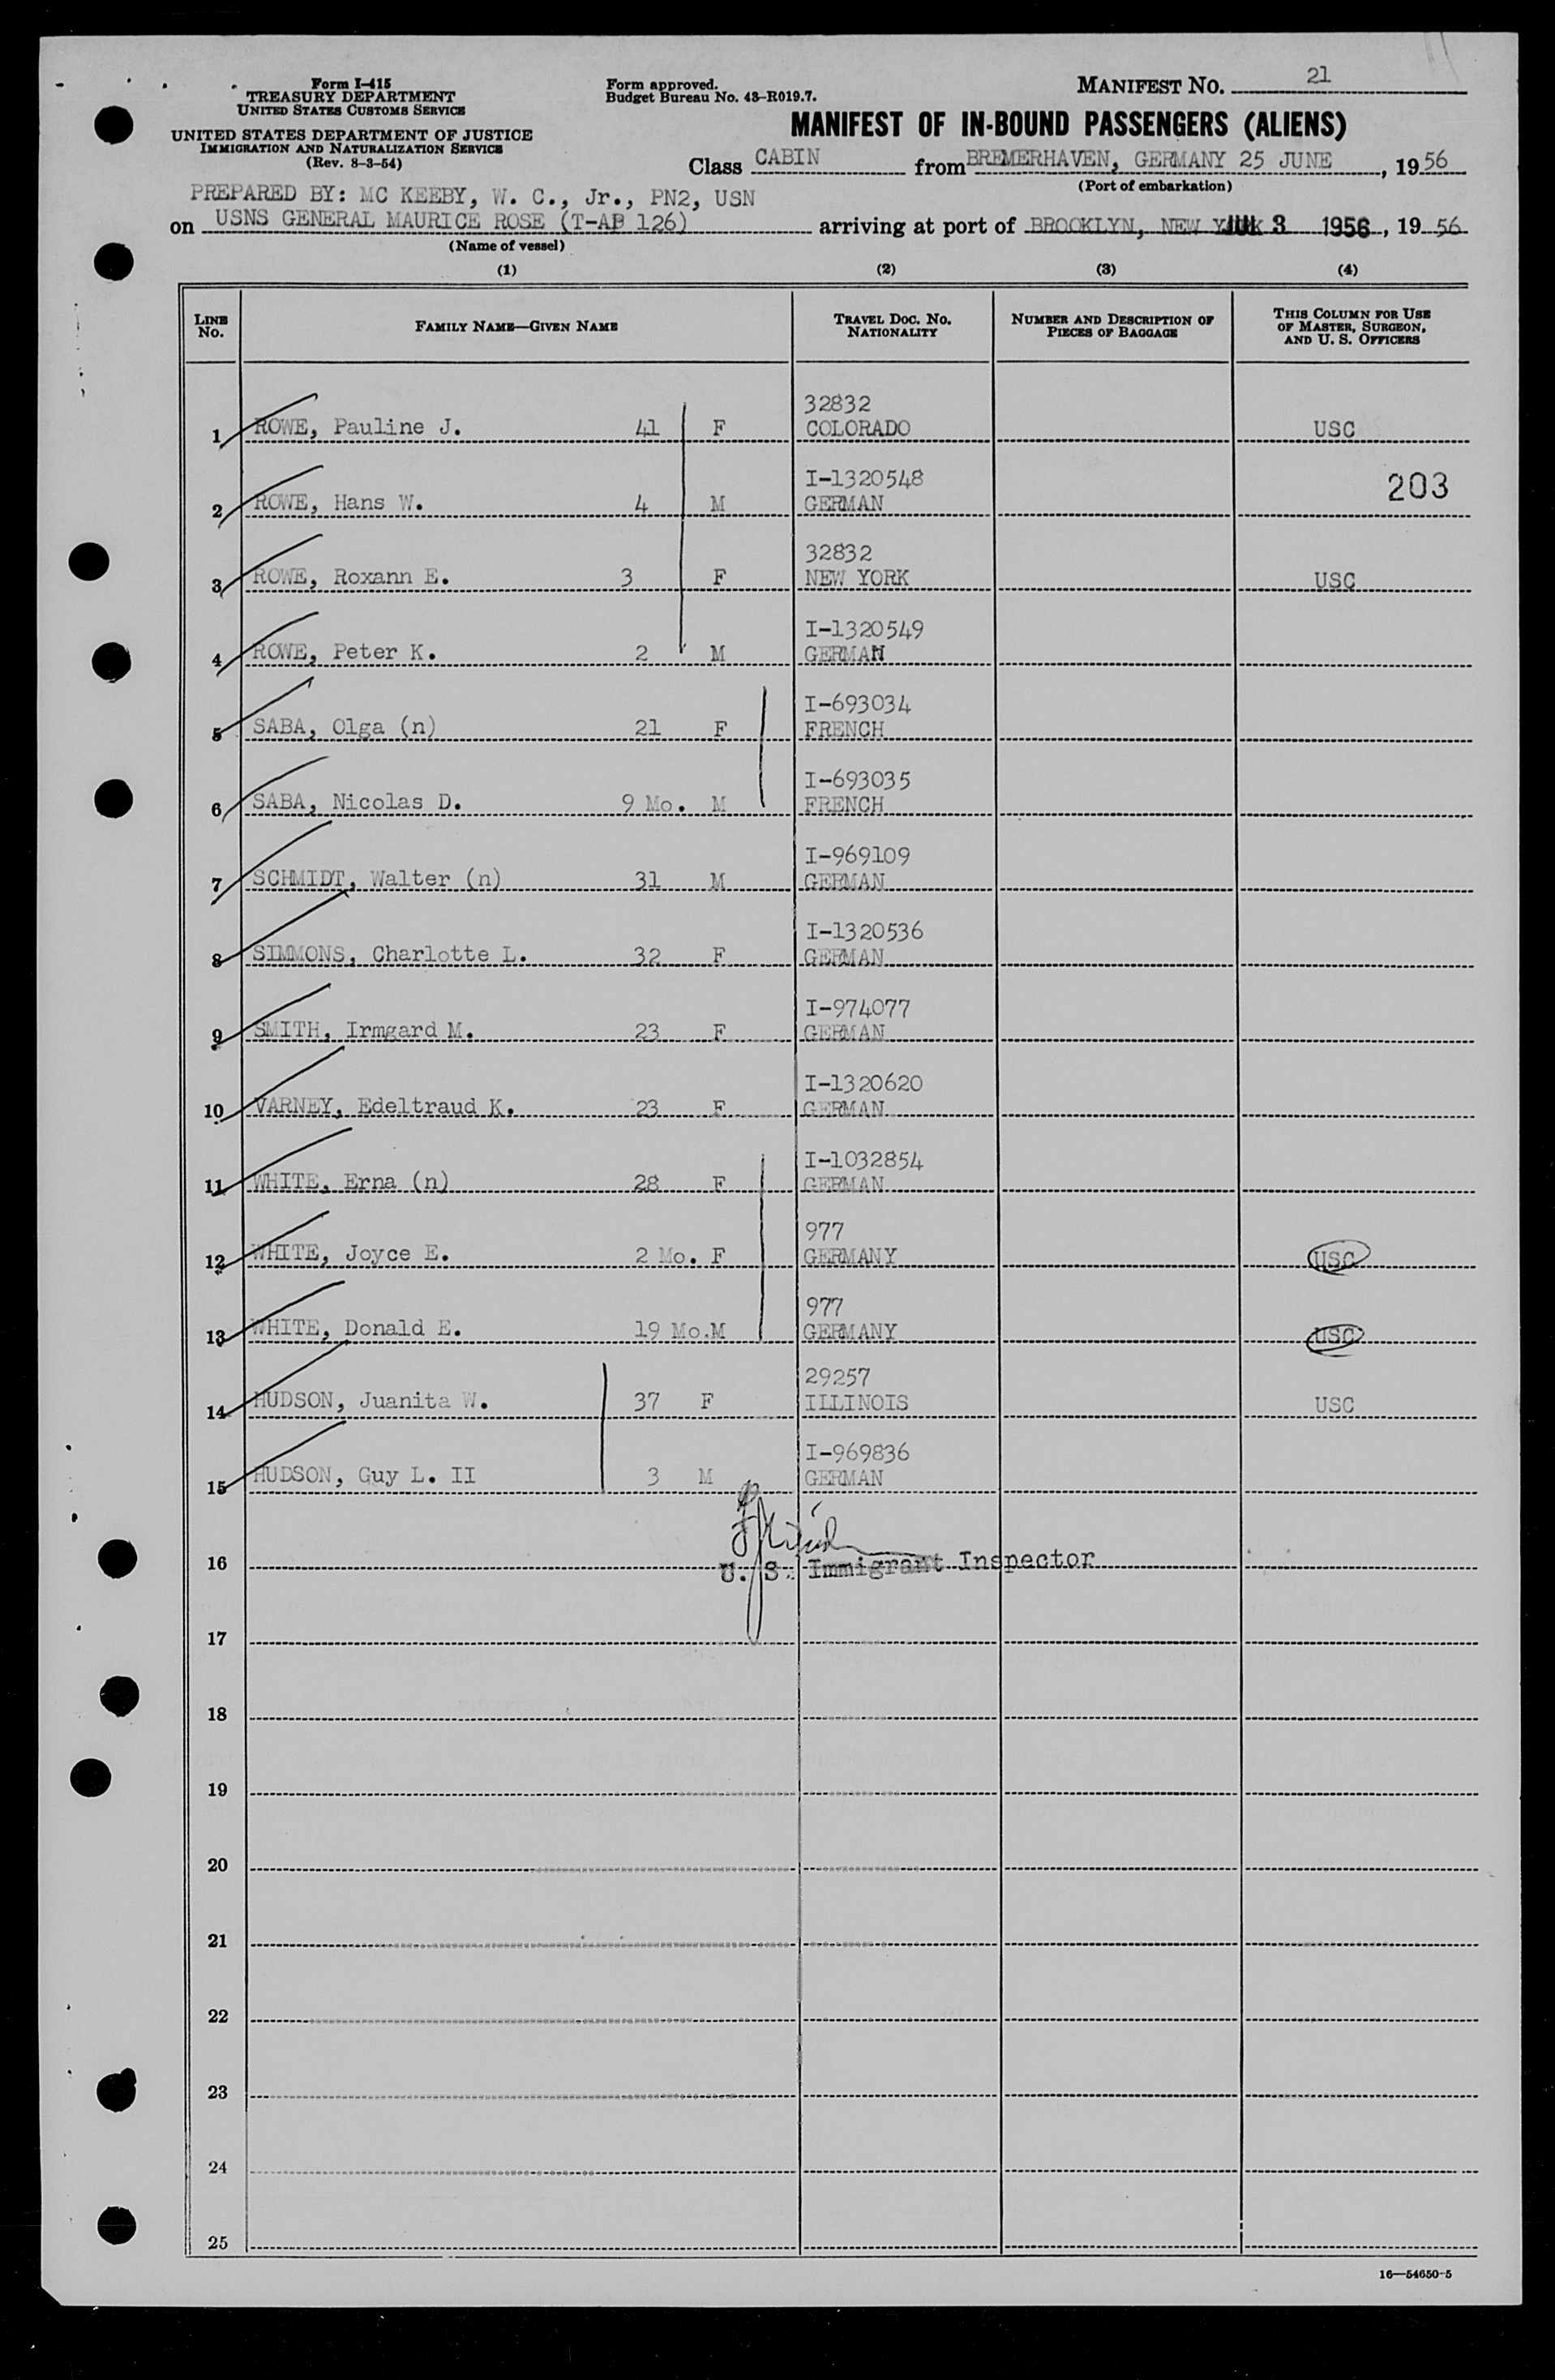 Form I-415
TREASURY DEPARTMENT
UNITED STATES CUSTOMS SERVICE
UNITED STATES DEPARTMENT OF JUSTICE
IMMIGRATION AND NATURALIZATION SERVICE
(Rev. 8-3-54)
Form approved.
Budget Bureau No. 43-R019.7.
MANIFEST NO. 21
MANIFEST OF IN-BOUND PASSENGERS (ALIENS)
Class CABIN from BREMERHAVEN, GERMANY 25 JUNE, 1956
(Port of embarkation)
PREPARED BY: MC KEEBY, W. C., Jr., PN2, USN
on USNS GENERAL MAURICE ROSE (T-AP 126) arriving at port of BROOKLYN, NEW YORK JUL 3 1956, 19 56
(Name of vessel)
(1) (2) (3) (4)
LINE NO. FAMILY NAME—GIVEN NAME TRAVEL DOC. NO. NATIONALITY NUMBER AND DESCRIPTION OF PIECES OF BAGGAGE THIS COLUMN FOR USE OF MASTER, SURGEON, AND U. S. OFFICERS
32832
1 ROWE, Pauline J. 41 F COLORADO USC
I-1320548 203
2 ROWE, Hans W. 4 M GERMAN
32832
3 ROWE, Roxann E. 3 F NEW YORK USC
I-1320549
4 ROWE, Peter K. 2 M GERMAN
I-693034
5 SABA, Olga (n) 21 F FRENCH
I-693035
6 SABA, Nicolas D. 9 Mo. M FRENCH
I-969109
7 SCHMIDT, Walter (n) 31 M GERMAN
I-1320536
8 SIMMONS, Charlotte L. 32 F GERMAN
I-974077
9 SMITH, Irmgard M. 23 F GERMAN
I-1320620
10 VARNEY, Edeltraud K. 23 F GERMAN
I-1032854
11 WHITE, Erna (n) 28 F GERMAN
977
12 WHITE, Joyce E. 2 Mo. F GERMANY USC
977
13 WHITE, Donald E. 19 Mo. M GERMANY USC
29257
14 HUDSON, Juanita W. 37 F ILLINOIS USC
I-969836
15 HUDSON, Guy L. II 3 M GERMAN
16 U. S. Immigrant Inspector
17
18
19
20
21
22
23
24
25
16—54650-5